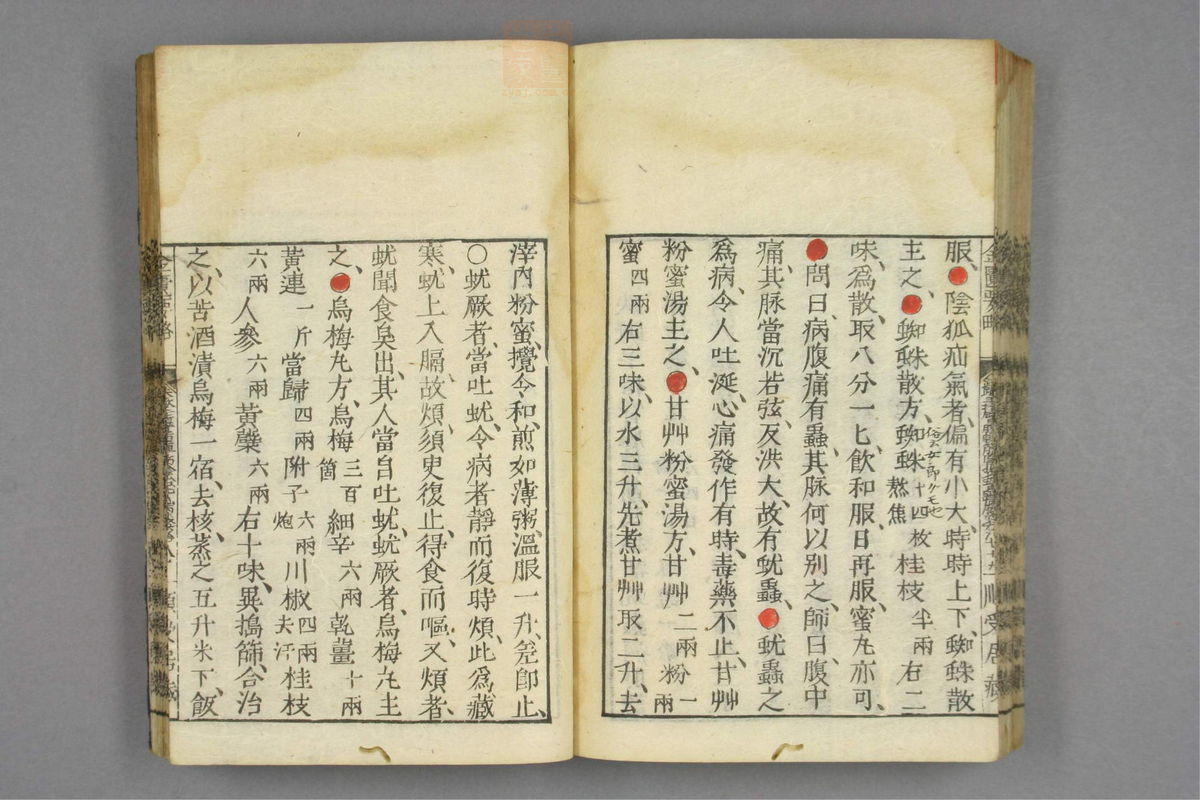 服●陰狐疝氣者、偏有小大、時時上下、蜘蛛散
主之、●蜘蛛散方、蜘蛛十四枚熬焦桂枝半兩右二
味、爲散、取八分一匕、飲和服、日再服、蜜丸亦可、
●問曰、病腹痛有蟲、其脉何以別之、師曰、腹中
痛、其脉當沉若弦、反洪大、故有蚘蟲、●蚘蟲之
爲病、令人吐涎、心痛發作有時、毒藥不止、甘艸
粉蜜湯主之、●甘艸粉蜜湯方、甘艸二兩粉一兩
蜜四兩右三味、以水三升、先煮甘艸取二升、去
滓、內粉蜜、攪令和、煎如薄粥、溫服一升、差卽止、
○蚘厥者、當吐蚘、令病者靜而復時煩、此爲藏
寒、蚘上入膈、故煩、須臾復止、得食而嘔、又煩者、
蚘聞食臭出、其人當自吐蚘、蚘厥者、烏梅丸主
之、●烏梅丸方、烏梅三百箇細辛六兩乾薑十兩
黃連一斤當歸四兩附子六兩炮川椒四兩去汗桂枝
六兩人參六兩黃蘗六兩右十味、異搗篩、合治
之、以苦酒漬烏梅一宿、去核、蒸之五升米下、飯
金匱要略
順受居藏